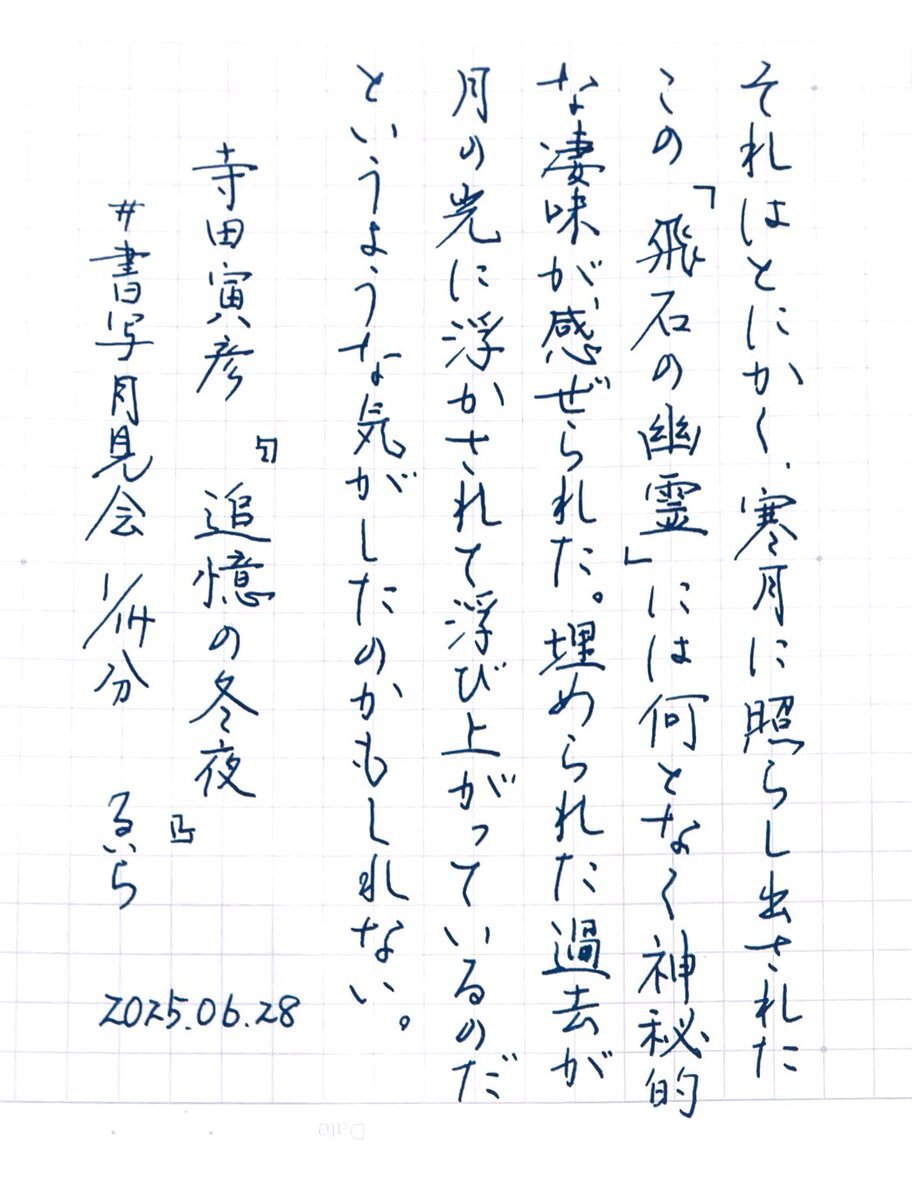 それはとにかく、寒月に照らし出された
この「飛石の幽霊」には何となく神秘的
な凄味が感ぜられた。埋められた過去が
月の光に浮かされて浮び上がっているのだ
というような気がしたのかもしれない。
寺田寅彦『追憶の冬夜』
#書写月見会 1/14分 るいら
2025.06.28
Date